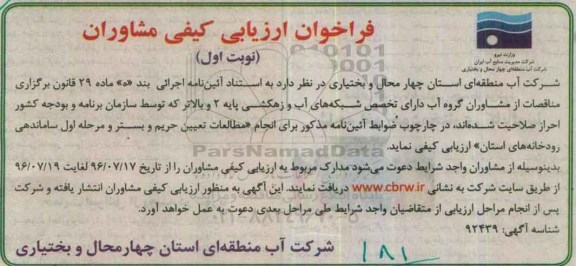 فراخوان ارزیابی کیفی مشاوران
(نوبت اول)
وزارت نیرو
شرکت مدیریت منابع آب ایران
شرکت آب منطقه‌ای چهار محال و بختیاری
شرکت آب منطقه‌ای استان چهار محال و بختیاری در نظر دارد به استناد آئین‌نامه اجرائی بند «ه» ماده ۲۹ قانون برگزاری
مناقصات از مشاوران گروه آب دارای تخصص شبکه‌های آب و زهکشی پایه ۲ و بالاتر که توسط سازمان برنامه و بودجه کشور
احراز صلاحیت شده‌اند، در چارچوب ضوابط آئین‌نامه مذکور برای انجام «مطالعات تعیین حریم و بستر و مرحله اول ساماندهی
رودخانه‌های استان» ارزیابی کیفی نماید.
بدینوسیله از مشاوران واجد شرایط دعوت می‌شود مدارک مربوط به ارزیابی کیفی مشاوران را از تاریخ ۹۶/۰۷/۱۷ لغایت ۹۶/۰۷/۱۹
از طریق سایت شرکت به نشانی www.cbrw.ir دریافت نمایند. این آگهی به منظور ارزیابی کیفی مشاوران انتشار یافته و شرکت
پس از انجام مراحل ارزیابی از متقاضیان واجد شرایط طی مراحل بعدی دعوت به عمل خواهد آورد.
شناسه آگهی: ۹۲۴۳۹
شرکت آب منطقه‌ای استان چهارمحال و بختیاری
۱۸۱
ParsNamadData